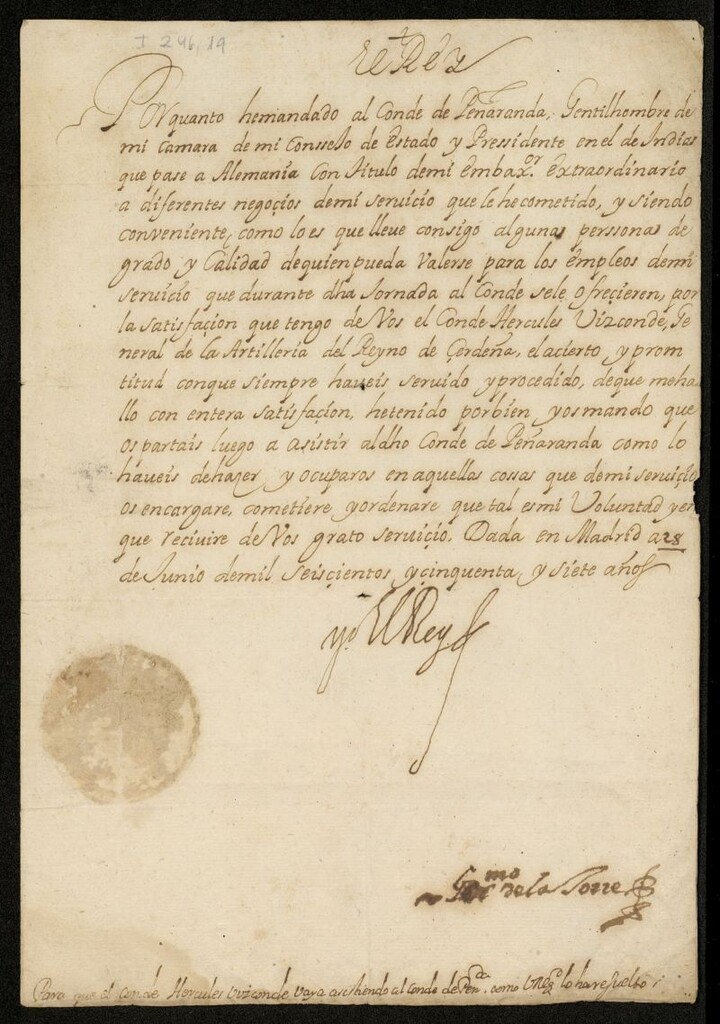 I 246, 19
El Rey
Por quanto hemandado al Conde de Peñaranda, Gentilhombre de
mi Camara de mi Conssejo de Estado y Pressidente en el de Indias
que pase a Alemania Con titulo demi Embax.or extraordinario
a diferentes negoçios demi seruicio que le he cometido, y siendo
conveniente, como lo es que lleve consigo algunas perssonas de
grado y Calidad dequien pueda Valerse para los empleos demi
seruicio que durante dha Jornada al Conde sele ofreçieren, por
la satisfaçion que tengo de Vos el Conde Hercules Vizconde, Ge
neral de la Artilleria del Reyno de Çerdeña, el acierto y prom
titud conque siempre haueis seruido y procedido, deque me ha
llo con entera satisfaçion, hetenido porbien, yosmando que
os partais luego a asistir aldho Conde de Peñaranda como lo
haueis dehazer, y ocuparos en aquellas cossas que demi seruiçio
os encargare, cometiere, yordenare que tal es mi Voluntad y en
que reciuire de Vos grato seruicio. Dada en Madrid a 28
de Junio demil seiscientos y cinquenta, y siete años
yo El Rey
Gr.mo de la Torre
Para que el Conde Hercules Vizconde vaya asistiendo al Conde de Peñ.da como V Mg.d lo ha resuelto